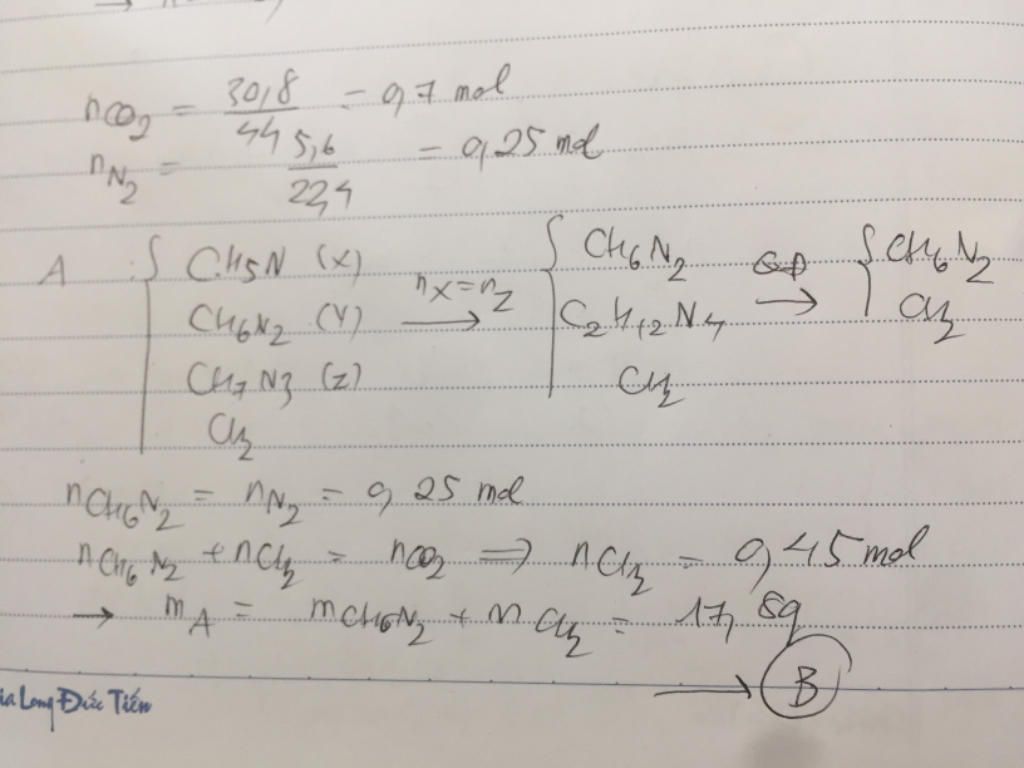 nCO2 = 30,8/44 = 0,7 mol
nN2 = 5,6/22,4 = 0,25 mol
A : { CH5N (X) nX = nZ → { CH6N2 → { CH6N2
CH6N2 (Y) C2H12N4 CH2
CH7N3 (Z) CH2
CH2
nCH6N2 = nN2 = 0,25 mol
nCH6N2 + nCH2 = nCO2 => nCH2 = 0,45 mol
→ mA = mCH6N2 + mCH2 = 17,8g
→ B
Long Đức Tiến